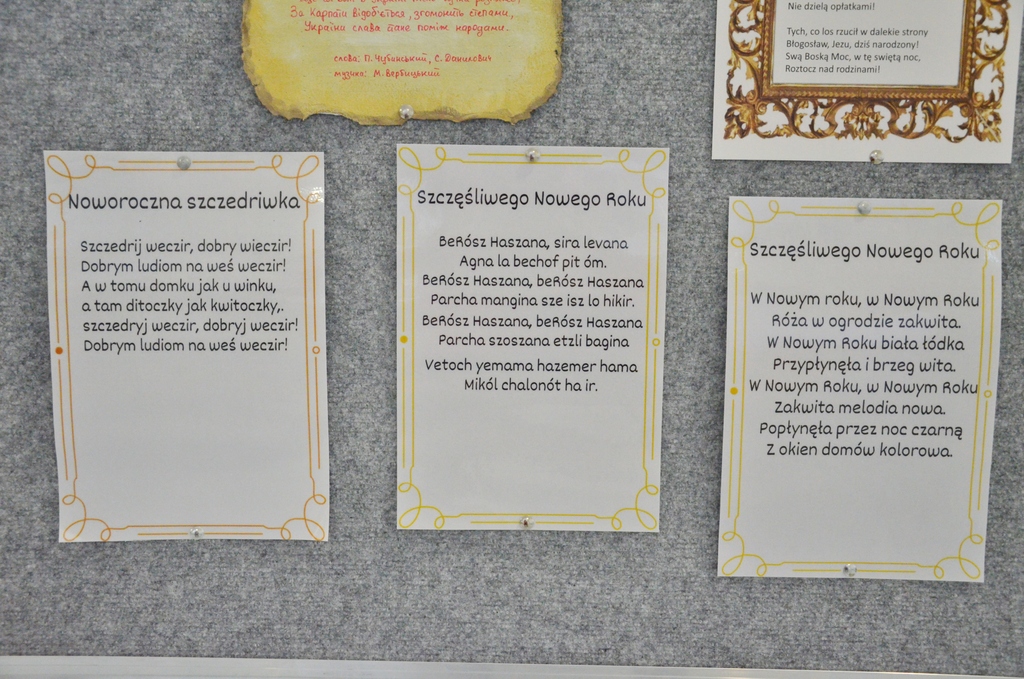 За Карпати відоб'ється, згомонить степами,
Україні слава стане поміж народами.
слова: П. Чубинський, С. Данилович
музика: М. Вербицький
Nie dzielą opłatkami!
Tych, co los rzucił w dalekie strony
Błogosław, Jezu, dziś narodzony!
Swą Boską Moc, w tę świętą noc,
Roztocz nad rodzinami!
Noworoczna szczedriwka
Szczedrij weczir, dobry wieczir!
Dobrym ludiom na weś weczir!
A w tomu domku jak u winku,
a tam ditoczky jak kwitoczky,.
szczedryj weczir, dobryj weczir!
Dobrym ludiom na weś weczir!
Szczęśliwego Nowego Roku
BeRósz Haszana, sira levana
Agna la bechof pit óm.
BeRósz Haszana, beRósz Haszana
Parcha mangina sze isz lo hikir.
BeRósz Haszana, beRósz Haszana
Parcha szoszana etzli bagina
Vetoch yemama hazemer hama
Mikól chalonót ha ir.
Szczęśliwego Nowego Roku
W Nowym roku, w Nowym Roku
Róża w ogrodzie zakwita.
W Nowym Roku biała łódka
Przypłynęła i brzeg wita.
W Nowym Roku, w Nowym Roku
Zakwita melodia nowa.
Popłynęła przez noc czarną
Z okien domów kolorowa.